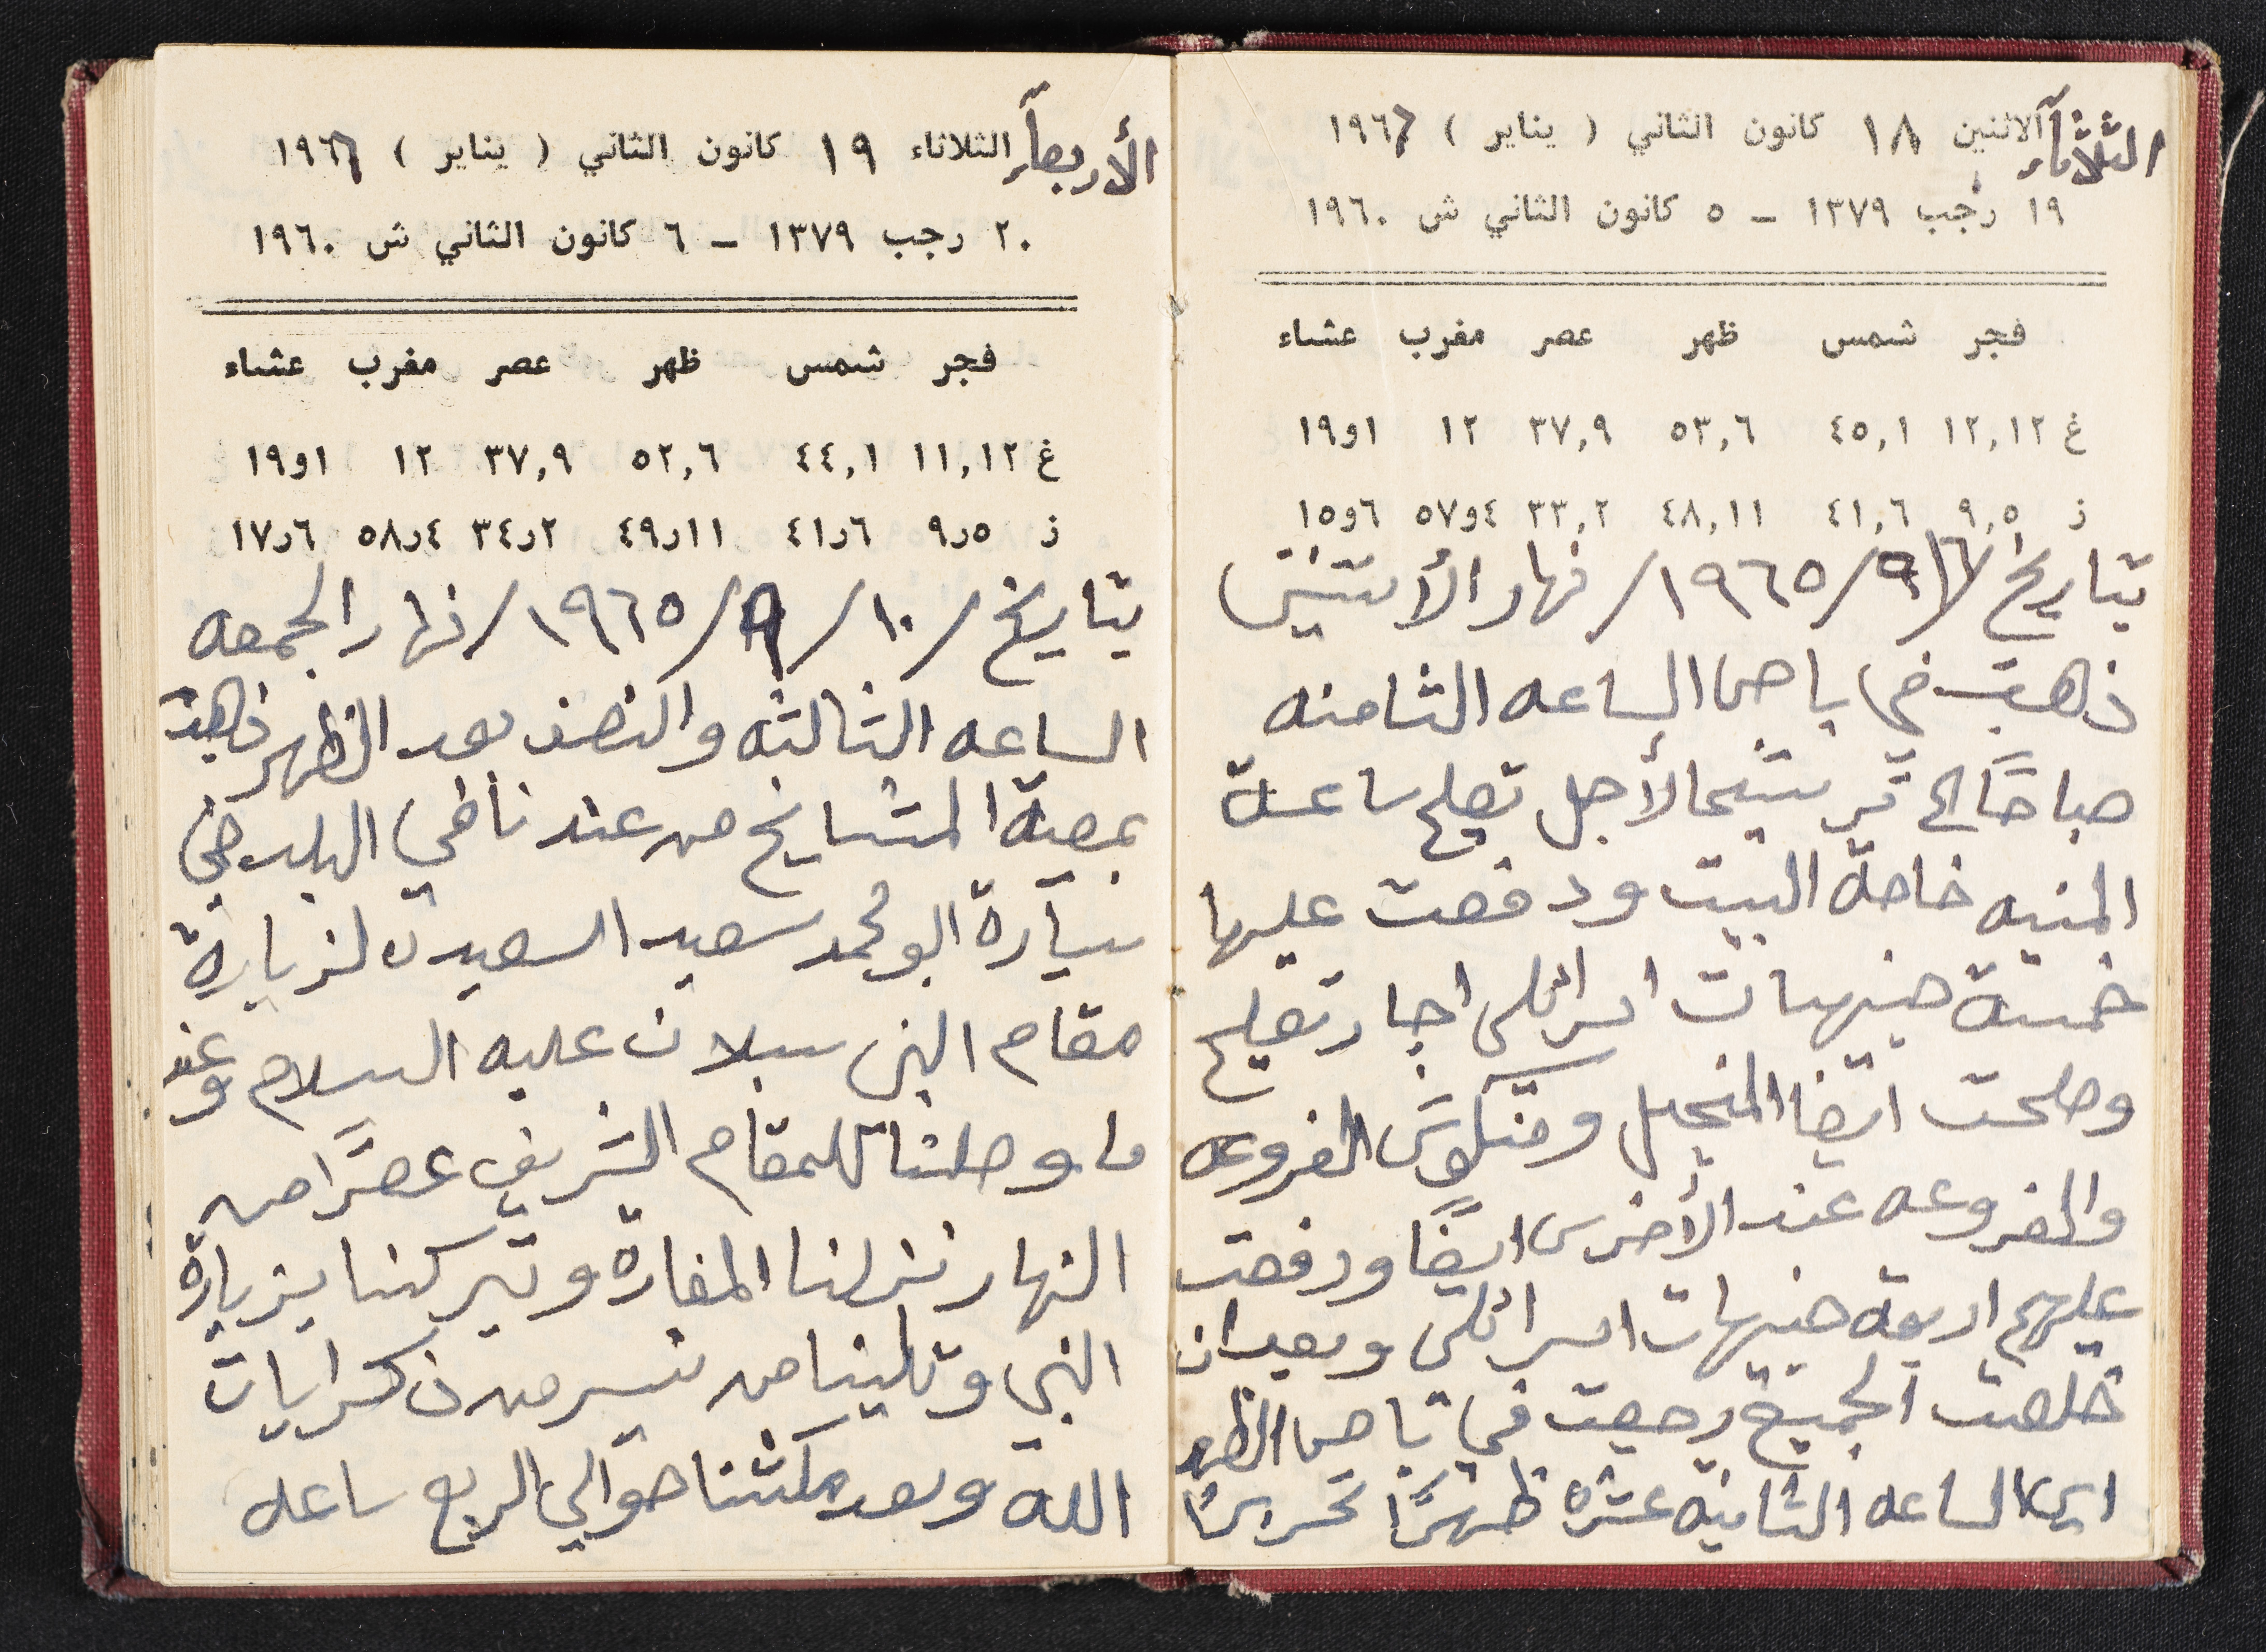 الثلاثآء الاثنين ١٨ كانون الثاني ( يناير ) ١٩٦٦
١٩ رجب ١٣٧٩ – ٥ كانون الثاني ش ١٩٦٠
فجر شمس ظهر عصر مغرب عشاء
غ ١٢,١٢ ٤٥,١ ٥٣,٦ ٣٧,٩ ١٢ ١و١٩
ز ٩,٥ ٤١,٦ ٤٨,١١ ٣٣,٢ ٤و٥٧ ٦و١٥
بتاريخ /٦/٩/١٩٦٥/ نهار الأثنين
ذهبت في باص الساعه الثامنه
صباحًا الى ترشيحا لأجل تصليح ساعة
المنبه خاصة البيت ودفعت عليها
خمسة جنيهات اسرائلي اجار تصليح
وصلحت ايضا المنجل ومنكوش الفروعه
والفروعه عند الأخرس ايضًا ودفعت
عليهم اربعة جنيهات اسرائلي وبعد ان
خلصت الجميع رجعت في باص الظهر
اي الساعه الثانيه عشره ظهرًا تحريرًا
الأربعآء الثلاثاء ١٩ كانون الثاني ( يناير ) ١٩٦٦
٢٠ رجب ١٣٧٩ – ٦ كانون الثاني ش ١٩٦٠
فجر شمس ظهر عصر مغرب عشاء
غ ١١,١٢ ٤٤,١ ٥٢,٦ ٣٧,٩ ١٢ ١و١٩
ز ٥ر٩ ٦ر٤١ ١١ر٤٩ ٢ر٣٤ ٤ر٥٨ ٦ر١٧
بتاريخ /١٠/٩/١٩٦٥/ نهار الجمعه
الساعه الثالثه والنصف بعد الظهر ذهبت
بمعية المشايخ من عندنا في البلد في
سيارة ابو محمد سعيد السعيد لزيارة
مقام النبي سبلان عليه السلام وعند
ما وصلنا للمقام الشريف عصرًا من
النهار نزلنا المغاره وتبركنا بزيارة
النبي وتلينا من تيسر من ذكر ايات
الله وبعد مكثنا حوالي الربع ساعه